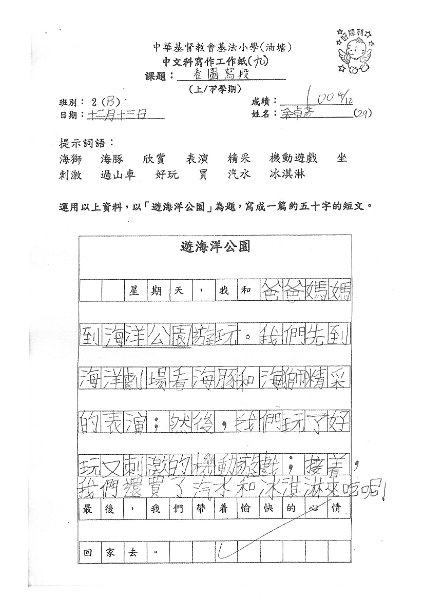 中華基督教會基法小學(油塘)
中文科寫作工作紙(九)
課題： 看圖寫段
(上/下學期)
班別： 2 (B) 成績： 100 9/12
日期： 十二月十三日 姓名： 余卓 (29)
提示詞語：
海獅 海豚 欣賞 表演 精采 機動遊戲 坐
刺激 過山車 好玩 買 汽水 冰淇淋
運用以上資料，以「遊海洋公園」為題，寫成一篇約五十字的短文。
遊海洋公園
星期天，我和爸爸媽媽
到海洋公園遊玩。我們先到
海洋劇場看海豚和海獅精采
的表演；然後，我們玩了好
玩又刺激的機動遊戲；接着，
我們還買了汽水和冰淇淋來吃呢!
最後，我們帶着愉快的心情
回家去。